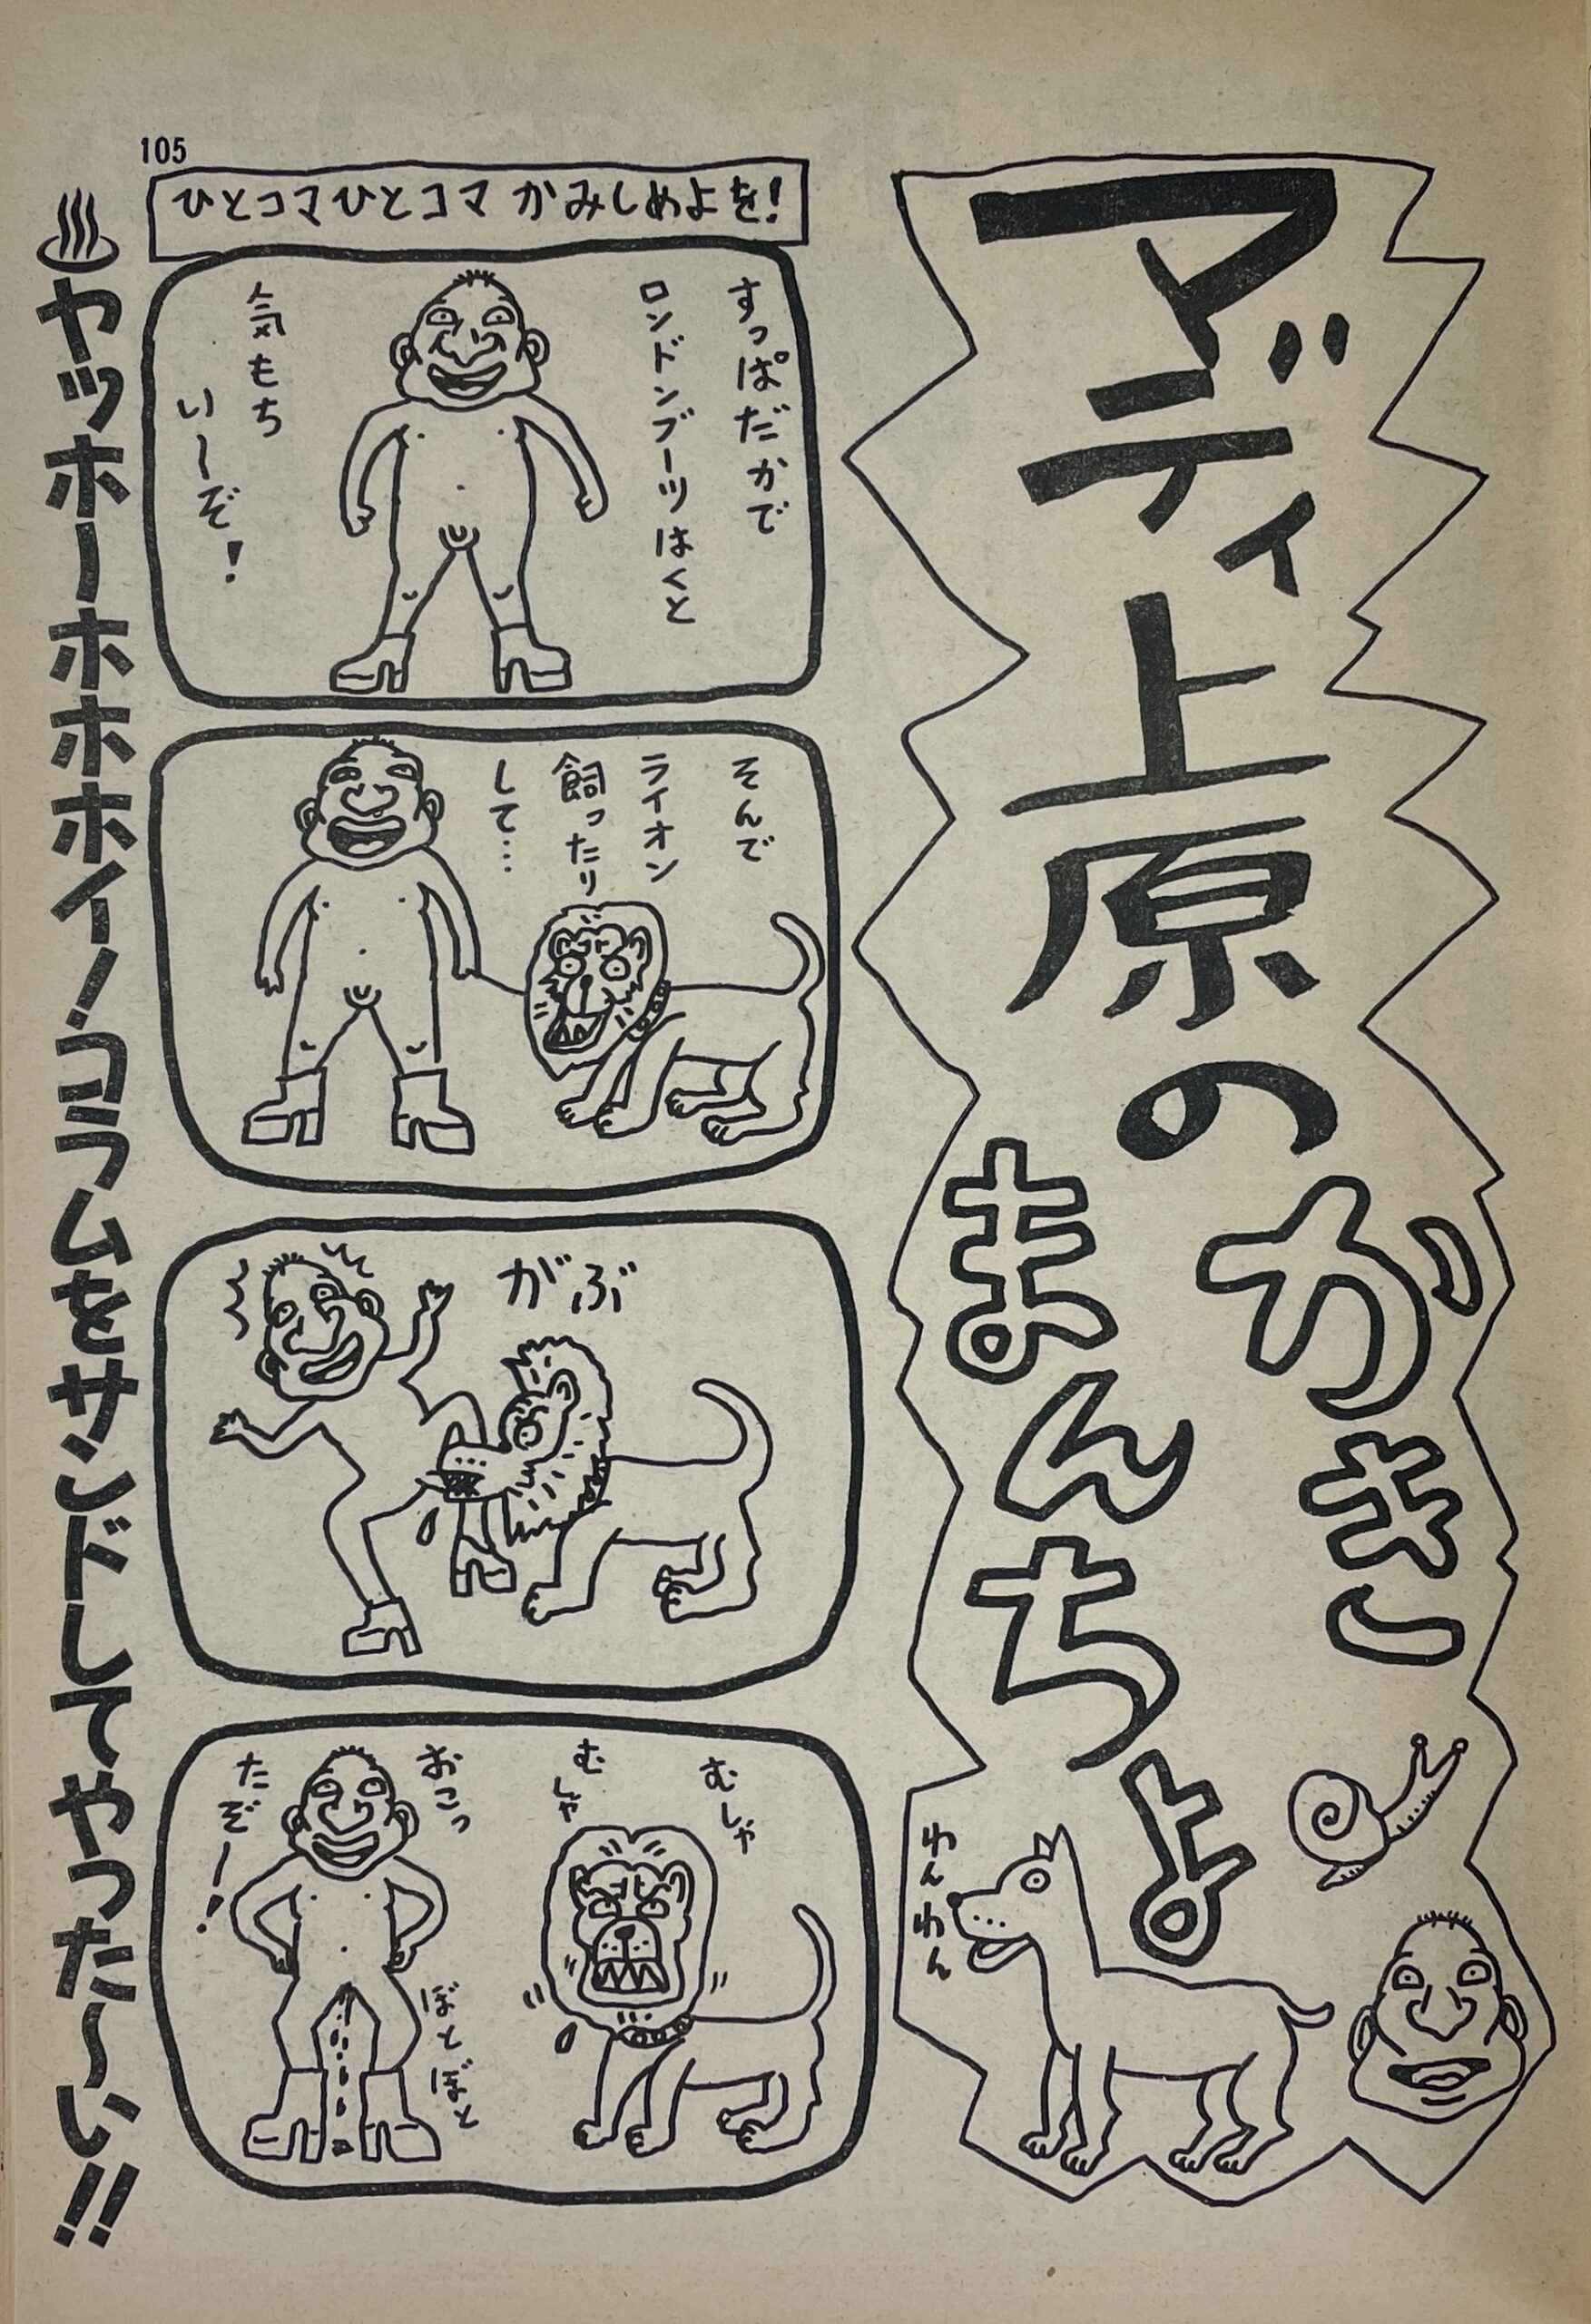 マディ上原の
かき
まんちょ
わんわん
105
ひとコマひとコマ かみしめよを!
すっぱだかで
ロンドンブーツはくと
気もち
い〜ぞ!
そんで
ライオン
飼ったり
して…
がぶ
むしゃ
むしゃ
おこっ
たぞー!
ぼとぼと
♨ヤッホーホホホイ!コラムをサンドしてやった〜い!!